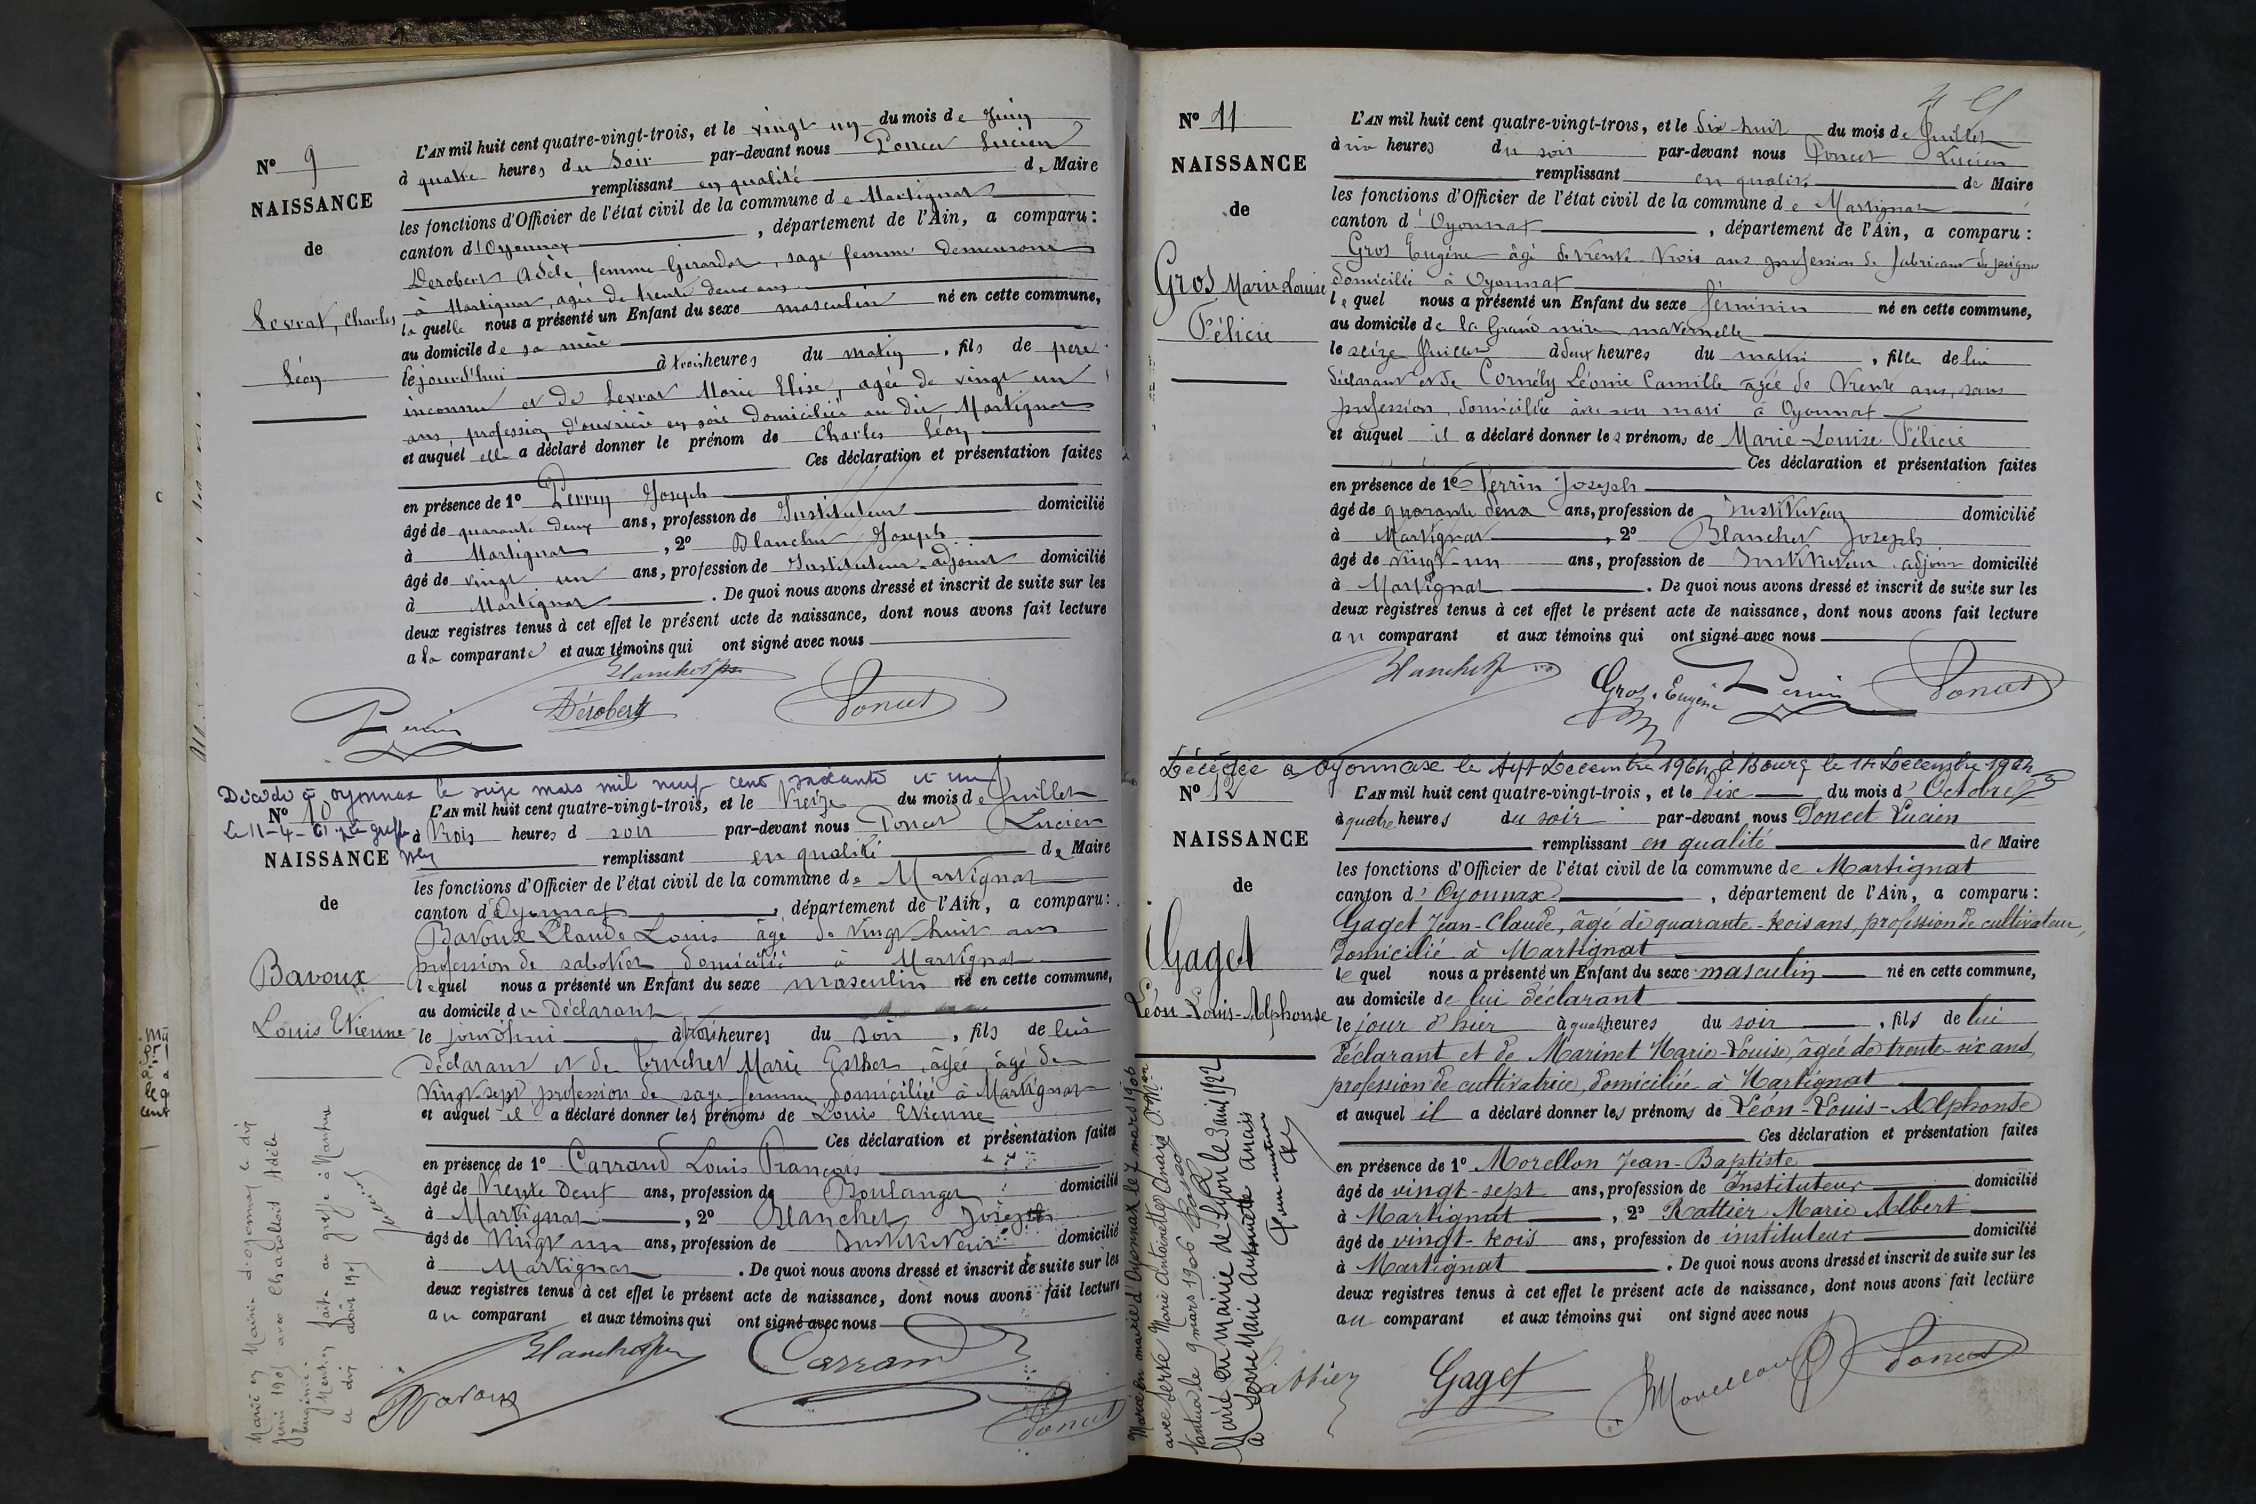 N° 9
NAISSANCE
de
Levrat, Charles
Léon
L'AN mil huit cent quatre-vingt-trois, et le vingt un du mois de Juin
à quatre heures du Soir par-devant nous Poncet Lucien
remplissant en qualité de Maire
les fonctions d'Officier de l'état civil de la commune de Martignat
canton d'Oyonnax, département de l'Ain, a comparu :
Derobert Adèle femme Girardot, sage femme demeurant
à Martignat, agée de trente deux ans
laquelle nous a présenté un Enfant du sexe masculin né en cette commune,
au domicile de sa mère
le jourd'hui à trois heures du matin, fils de père
inconnu et de Levrat Marie Elise, agée de vingt un
ans, profession d'ouvrière en soie domiciliée au dit Martignat
et auquel elle a déclaré donner le prénom de Charles Léon
Ces déclaration et présentation faites
en présence de 1° Perrin Joseph
âgé de quarante deux ans, profession de Instituteur domicilié
à Martignat, 2° Blanchet Joseph
âgé de vingt un ans, profession de Instituteur-adjoint domicilié
à Martignat. De quoi nous avons dressé et inscrit de suite sur les
deux registres tenus à cet effet le présent acte de naissance, dont nous avons fait lecture
a la comparante et aux témoins qui ont signé avec nous
Blanchet
Perrin Dérobert Poncet
Décédé à oyonnax le seize mars mil neuf cent soixante et un
Le 11-4-61
N° 10
NAISSANCE
de
Bavoux
Louis Etienne
L'AN mil huit cent quatre-vingt-trois, et le treize du mois de Juillet
à trois heures d soir par-devant nous Poncet Lucien
remplissant en qualité de Maire
les fonctions d'Officier de l'état civil de la commune de Martignat
canton d'Oyonnax, département de l'Ain, a comparu :
Bavoux Claude Louis âgé de vingt huit ans
profession de sabotier domicilié à Martignat
lequel nous a présenté un Enfant du sexe masculin né en cette commune,
au domicile du déclarant
le jourd'hui à trois heures du soir, fils de lui
déclarant et de Truchet Marie Esther âgée âgé de
vingt-sept profession de sage-femme domiciliée à Martignat
et auquel il a déclaré donner les prénoms de Louis Etienne
Ces déclaration et présentation faites
en présence de 1° Carrand Louis François
âgé de trente deux ans, profession de Boulanger domicilié
à Martignat, 2° Blanchet Joseph
âgé de vingt un ans, profession de Instituteur domicilié
à Martignat. De quoi nous avons dressé et inscrit de suite sur les
deux registres tenus à cet effet le présent acte de naissance, dont nous avons fait lecture
au comparant et aux témoins qui ont signé avec nous
Blanchet Carrand
Bavoux Poncet
Marié en Mairie d'oyonnax le dix
Juin 1905 avec Charollait Adèle
Eugénie
Mention faite au greffe à Nantua
le dix août 1905
N° 11
NAISSANCE
de
Gros Marie Louise
Félicie
L'AN mil huit cent quatre-vingt-trois, et le dix huit du mois de Juillet
à six heures du soir par-devant nous Poncet Lucien
remplissant en qualité de Maire
les fonctions d'Officier de l'état civil de la commune de Martignat
canton d'Oyonnax, département de l'Ain, a comparu :
Gros Eugène âgé de trente-trois ans profession de fabricant de peignes
domicilié à Oyonnax
lequel nous a présenté un Enfant du sexe féminin né en cette commune,
au domicile de la Grand mère maternelle
le seize Juillet à deux heures du matin, fille de lui
déclarant et de Cornély Léonie Camille âgée de trente ans, sans
profession, domiciliée avec son mari à Oyonnax
et auquel il a déclaré donner les prénoms de Marie-Louise Félicie
Ces déclaration et présentation faites
en présence de 1° Perrin Joseph
âgé de quarante deux ans, profession de Instituteur domicilié
à Martignat, 2° Blanchet Joseph
âgé de vingt-un ans, profession de Instituteur adjoint domicilié
à Martignat. De quoi nous avons dressé et inscrit de suite sur les
deux registres tenus à cet effet le présent acte de naissance, dont nous avons fait lecture
au comparant et aux témoins qui ont signé avec nous
Blanchet Gros Eugène Perrin Poncet
Décédée à Oyonnax le sept Décembre 1964 à Bourg le 14 Décembre 1964
N° 12
NAISSANCE
de
Gaget
Léon-Louis-Alphonse
L'AN mil huit cent quatre-vingt-trois, et le dix du mois d'Octobre
à quatre heures du soir par-devant nous Poncet Lucien
remplissant en qualité de Maire
les fonctions d'Officier de l'état civil de la commune de Martignat
canton d'Oyonnax, département de l'Ain, a comparu :
Gaget Jean-Claude, âgé de quarante-trois ans, profession de cultivateur,
domicilié à Martignat
lequel nous a présenté un Enfant du sexe masculin né en cette commune,
au domicile de lui déclarant
le jour d'hier à quatre heures du soir, fils de lui
déclarant et de Marinet Marie-Louise, âgée de trente-six ans,
profession de cultivatrice, domiciliée à Martignat
et auquel il a déclaré donner les prénoms de Léon-Louis-Alphonse
Ces déclaration et présentation faites
en présence de 1° Morellon Jean-Baptiste
âgé de vingt-sept ans, profession de Instituteur domicilié
à Martignat, 2° Rattier Marie Albert
âgé de vingt-trois ans, profession de instituteur domicilié
à Martignat. De quoi nous avons dressé et inscrit de suite sur les
deux registres tenus à cet effet le présent acte de naissance, dont nous avons fait lecture
au comparant et aux témoins qui ont signé avec nous
Rattier Gaget Morellon Poncet
Marié en mairie d'Oyonnax le 7 mars 1906
avec Serre Marie Antoinette Anaïs
Nantua le 9 mars 1906
Marié en mairie de Lyon le 3 avril 1922
à Serre Marie Antoinette Anaïs
Pour mention